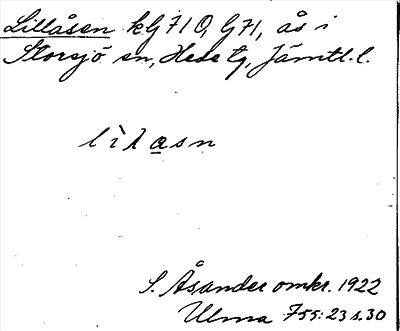 Lillåsen kG710, G71, ås i
Storsjö sn, Hede tg, Jämtl. l.
lìlasn
S. Åsander omkr. 1922
Ulma 755:23 s. 30